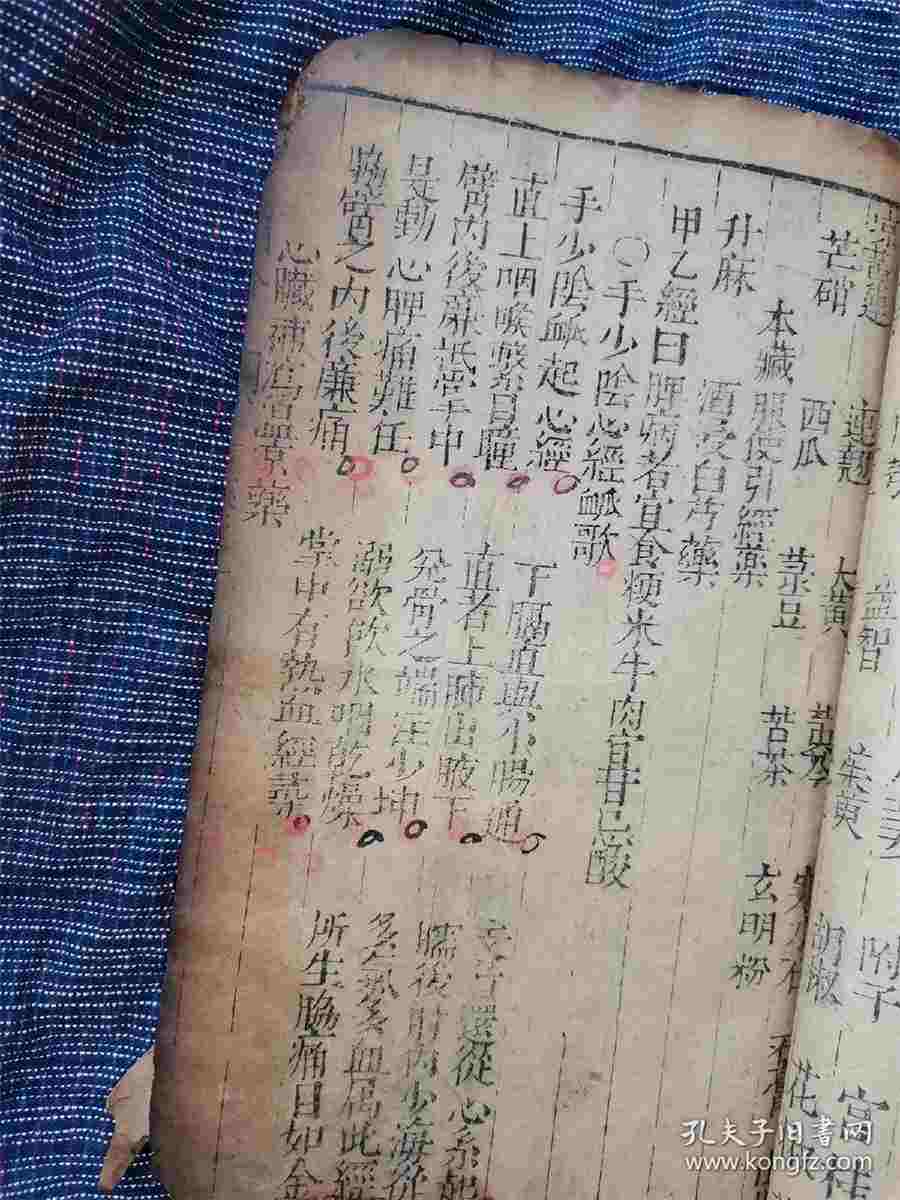 益智 附子
連翹 大黃
芒硝 西瓜 菉豆 苦茶 玄明粉
本藏服使引經藥
升麻 酒浸白芍藥
甲乙經曰脾病者宜食粳米牛肉宜甘忌酸
〇手少陰心經䘑歌
手少陰䘑起心經 下膈直與小腸通 還從心系起
直上咽喉繫目瞳 直者上肺出腋下 臑後肘內少海從
臂內後廉抵掌中 兌骨之端注少冲 多氣多血屬此經
是動心脾痛難任 渴欲飲水咽乾燥 所生脇痛目如金
脇臂之內後廉痛 掌中有熱
心臟補瀉溫 藥
孔夫子旧书网
www.kongfz.com